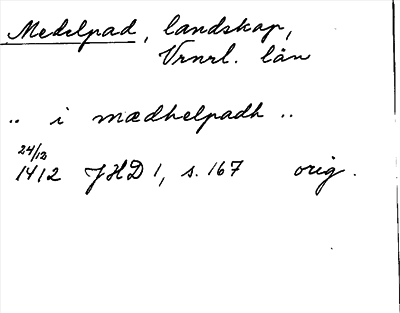 Medelpad, landskap,
Vrnrl. län
.. i mædhelpadh ..
24/12
1412 JHD 1, s. 167 orig.